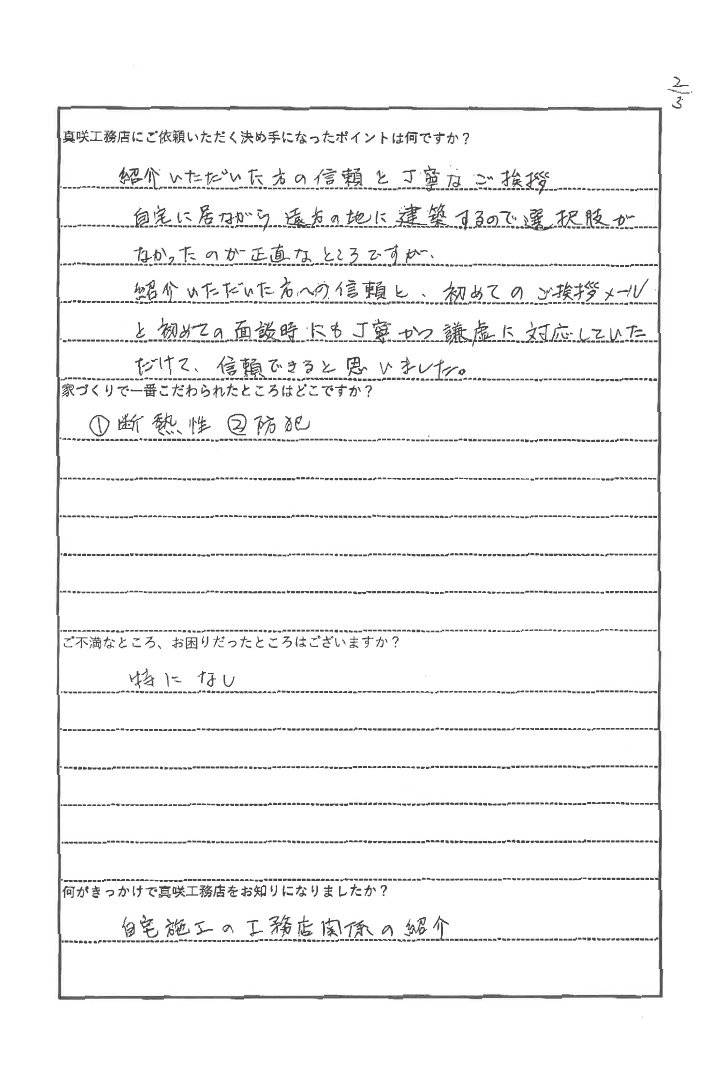 2/3
真咲工務店にご依頼いただく決め手になったポイントは何ですか？
紹介いただいた方の信頼と丁寧なご挨拶
自宅に居ながら遠方の地に建築するので選択肢が
なかったのが正直なところですが、
紹介いただいた方への信頼と、初めてのご挨拶メール
と初めての面談時にも丁寧かつ謙虚に対応していた
だけて、信頼できると思いました。
家づくりで一番こだわられたところはどこですか？
①断熱性 ②防犯
ご不満なところ、お困りだったところはございますか？
特になし
何がきっかけで真咲工務店をお知りになりましたか？
自宅施工の工務店関係の紹介